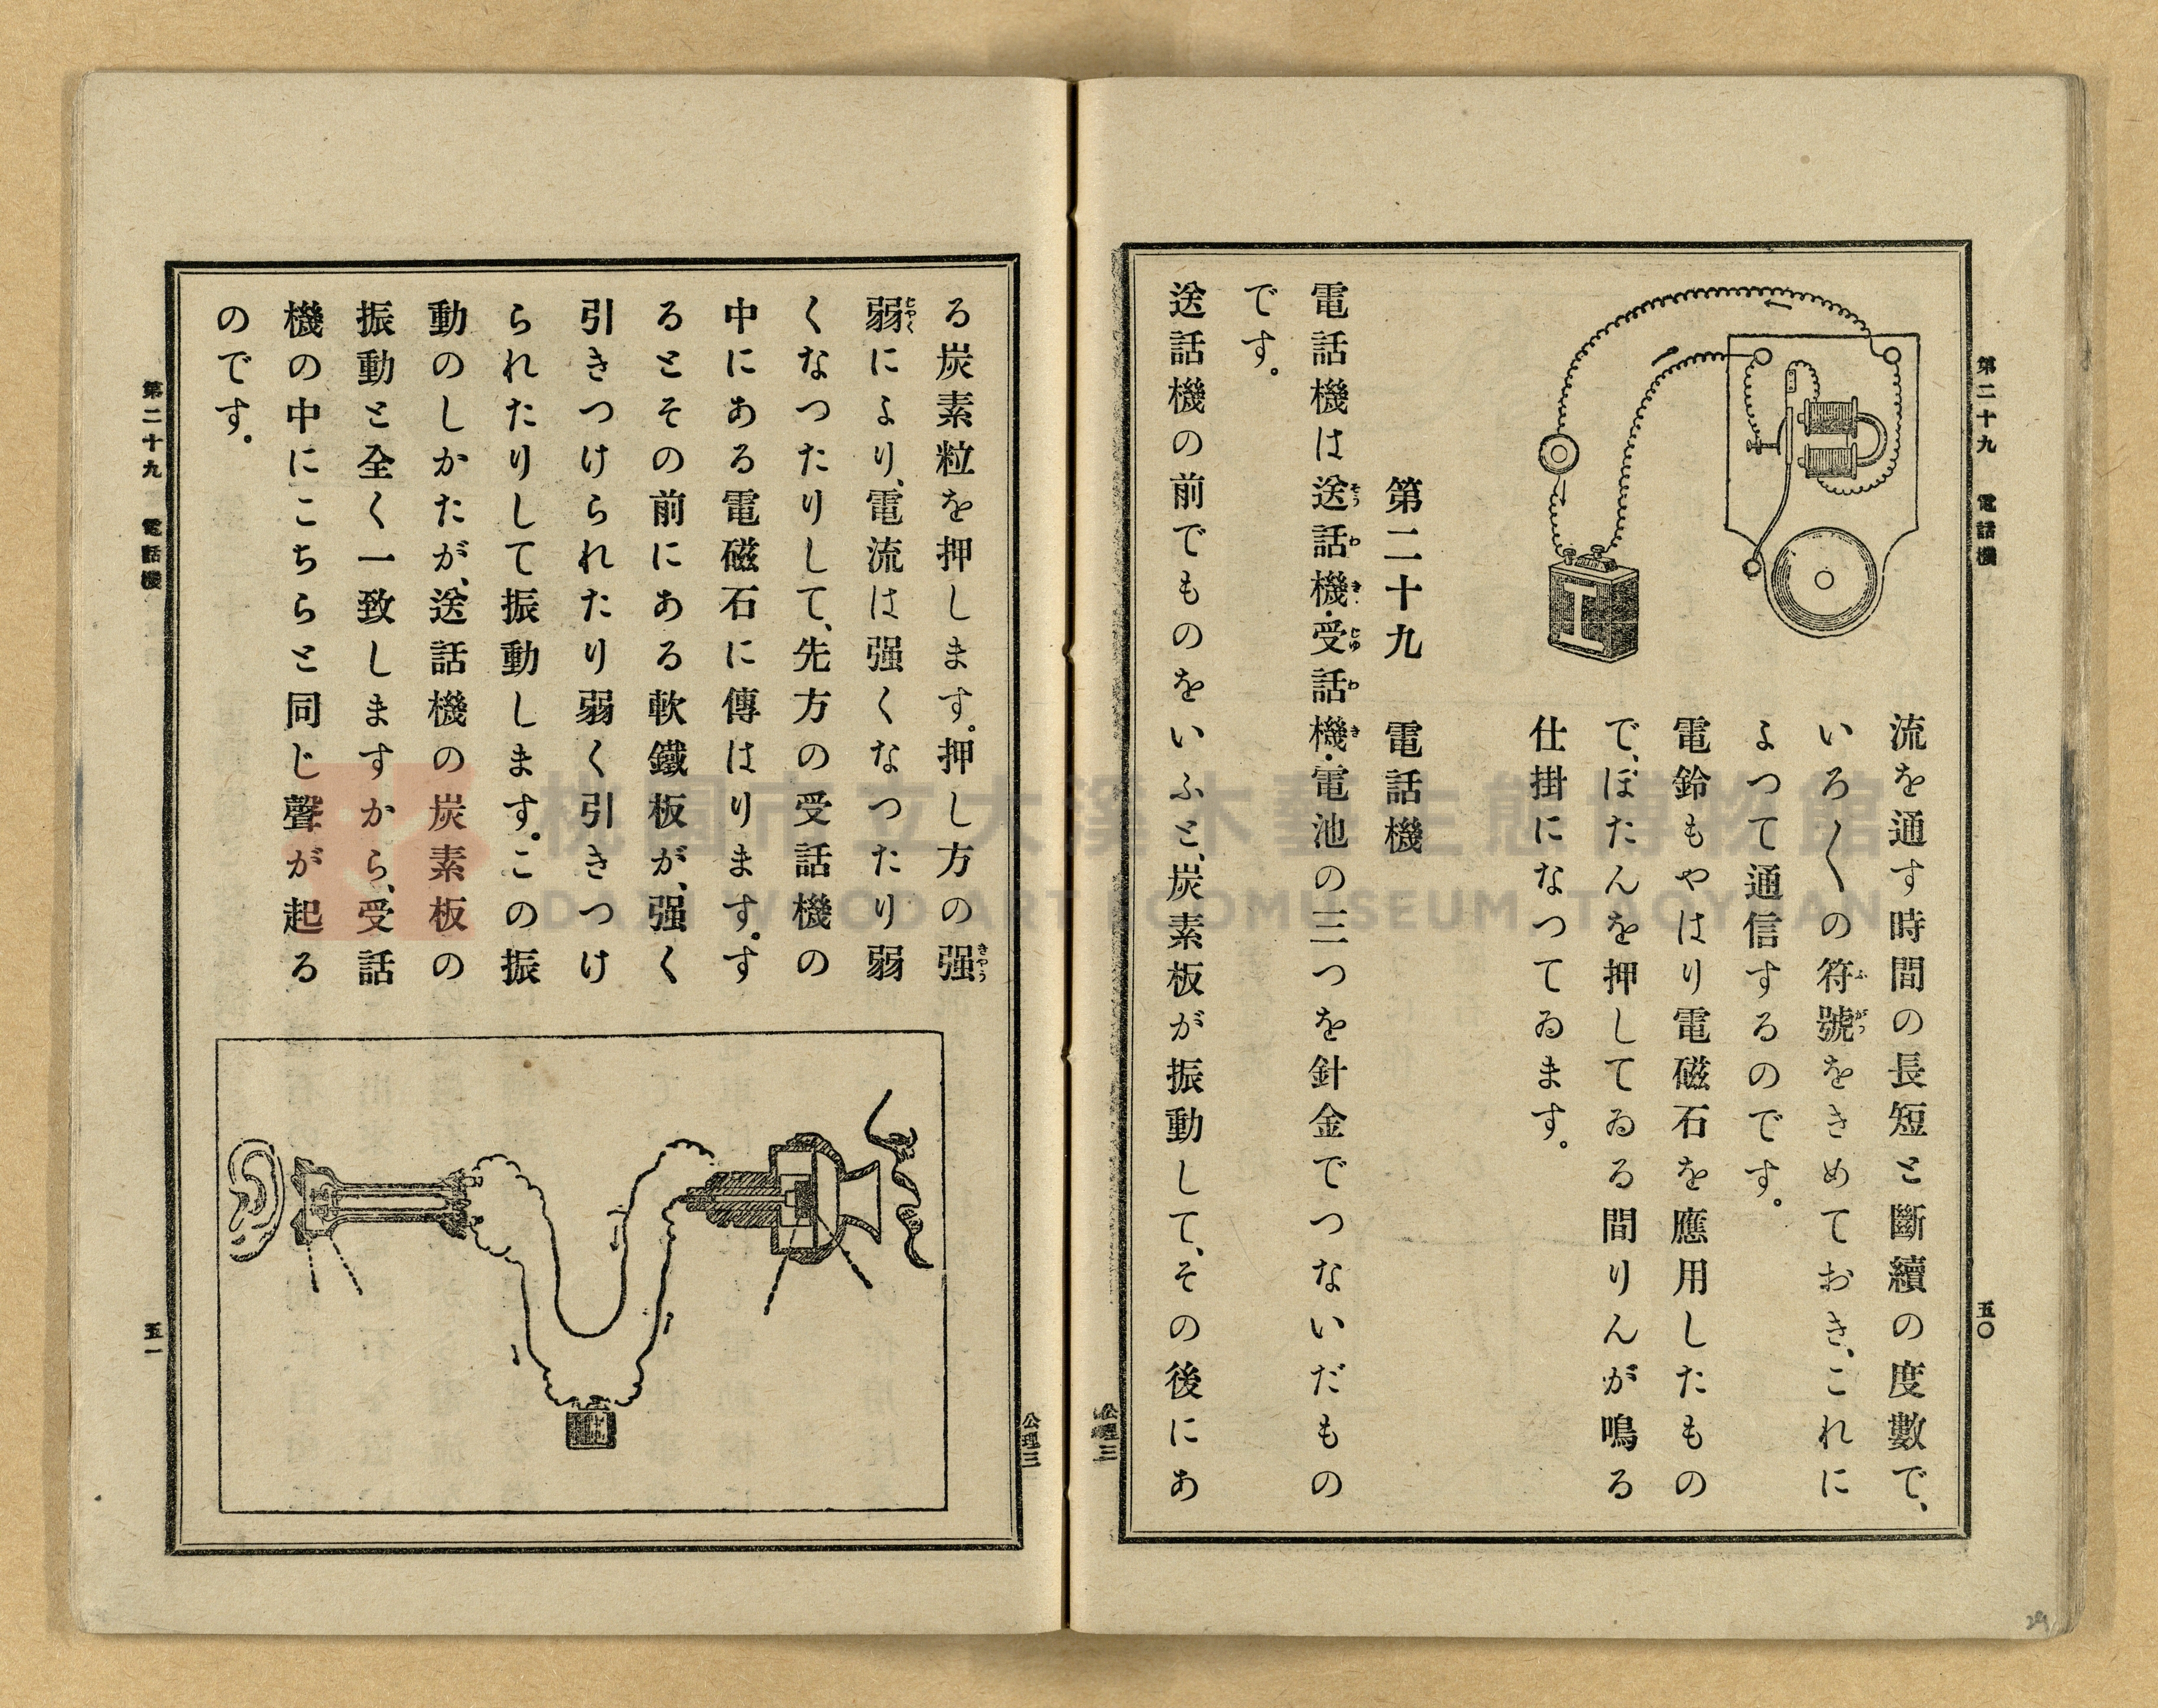 第二十九 電話機
五〇
流を通す時間の長短と斷續の度數で、
いろ〱の符號をきめておき、これに
よつて通信するのです。
電鈴もやはり電磁石を應用したもの
で、ぼたんを押してゐる間りんが鳴る
仕掛になつてゐます。
第二十九 電話機
電話機は送話機・受話機・電池の三つを針金でつないだもの
です。
送話機の前でものをいふと、炭素板が振動して、その後にあ
公理三
公理三
る炭素粒を押します。押し方の强
弱により、電流は强くなつたり弱
くなつたりして、先方の受話機の
中にある電磁石に傳はります。す
るとその前にある軟鐵板が、强く
引きつけられたり弱く引きつけ
られたりして振動します。この振
動のしかたが、送話機の炭素板の
振動と全く一致しますから、受話
機の中にこちらと同じ聲が起る
のです。
第二十九 電話機
五一
桃園市立大溪木藝生態博物館
DAXI WOOD ART ECOMUSEUM, TAOYUAN
29